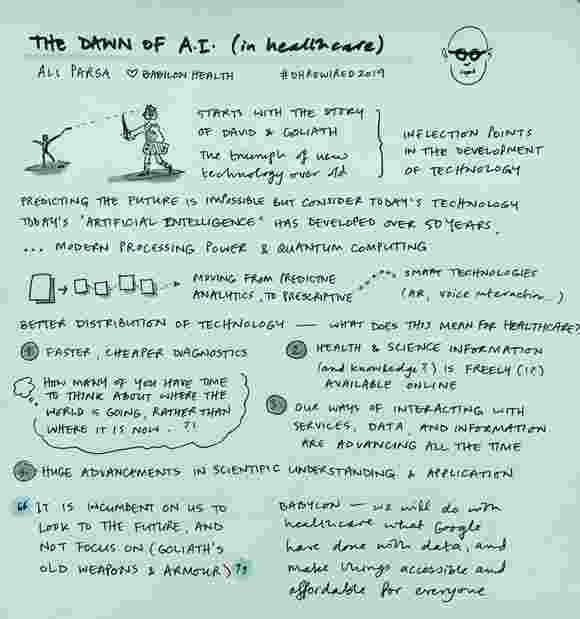 THE DAWN OF A.I. (in healthcare)
ALI PARSA ♡ BABILON HEALTH #DHREWIRED2019
STARTS WITH THE STORY
OF DAVID & GOLIATH
The triumph of new
technology over old
INFLECTION POINTS
IN THE DEVELOPMENT
OF TECHNOLOGY
PREDICTING THE FUTURE IS IMPOSSIBLE BUT CONSIDER TODAY'S TECHNOLOGY
TODAY'S "ARTIFICIAL INTELLIGENCE" HAS DEVELOPED OVER 50 YEARS.
... MODERN PROCESSING POWER & QUANTUM COMPUTING
MOVING FROM PREDICTIVE
ANALYTICS, TO PRESCRIPTIVE
SMART TECHNOLOGIES
(AR, voice interaction...)
BETTER DISTRIBUTION OF TECHNOLOGY — WHAT DOES THIS MEAN FOR HEALTHCARE?
1 FASTER, CHEAPER DIAGNOSTICS
HOW MANY OF YOU HAVE TIME
TO THINK ABOUT WHERE THE
WORLD IS GOING, RATHER THAN
WHERE IT IS NOW. ?!
2 HEALTH & SCIENCE INFORMATION
(and knowledge?) IS FREELY (!?)
AVAILABLE ONLINE
3 OUR WAYS OF INTERACTING WITH
SERVICES, DATA, AND INFORMATION
ARE ADVANCING ALL THE TIME
4 HUGE ADVANCEMENTS IN SCIENTIFIC UNDERSTANDING & APPLICATION
"IT IS INCUMBENT ON US TO
LOOK TO THE FUTURE, AND
NOT FOCUS ON (GOLIATH'S
OLD WEAPONS & ARMOUR)"
BABYLON — we will do with
healthcare what Google
have done with data, and
make things accessible and
affordable for everyone